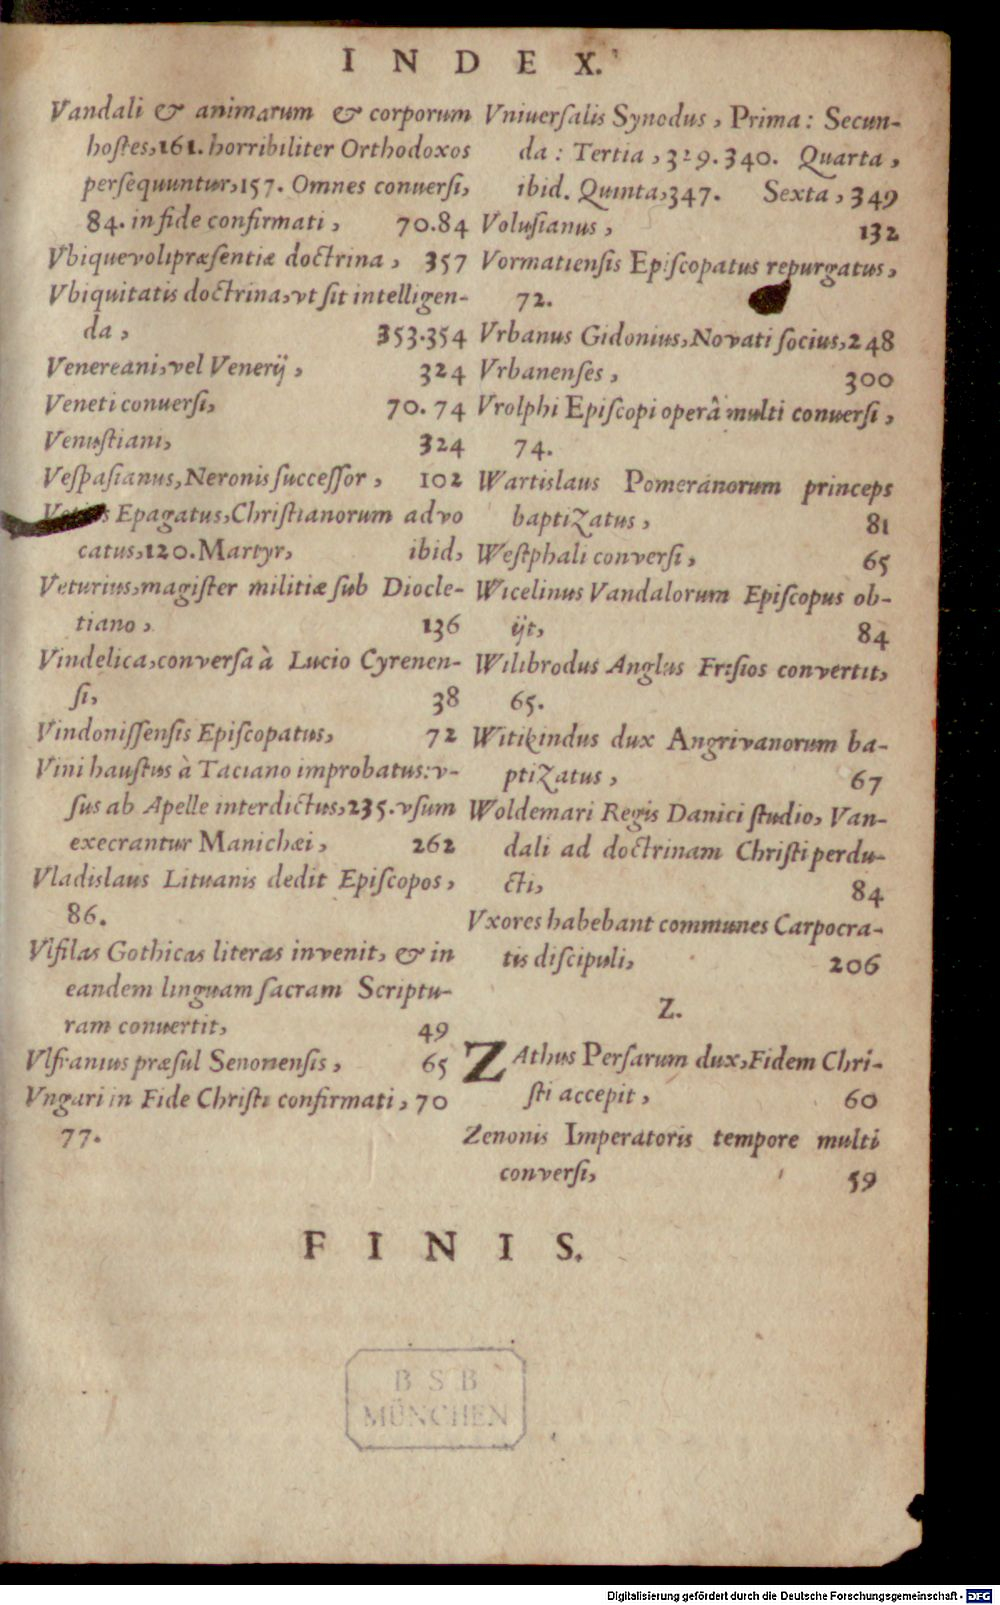 INDEX.
Vandali & animarum & corporum
hostes,161. horribiliter Orthodoxos
persequuntur,157. Omnes conuersi,
84. in fide confirmati, 70.84
Vbiquevolipræsentiæ doctrina, 357
Vbiquitatis doctrina,vt sit intelligen-
da, 353.354
Venereani,vel Venerij, 324
Veneti conuersi, 70. 74
Venustiani, 324
Vespasianus,Neronis successor, 102
Epagatus,Christianorum advo
catus,120.Martyr, ibid,
Veturius,magister militiæ sub Diocle-
tiano, 136
Vindelica,conversa à Lucio Cyrenen-
si, 38
Vindonissensis Episcopatus, 72
Vini haustus à Taciano improbatus:v-
sus ab Apelle interdictus,235.vsum
execrantur Manichæi, 262
Vladislaus Lituanis dedit Episcopos,
86.
Vlfilas Gothicas literas invenit, & in
eandem linguam sacram Scriptu-
ram conuertit, 49
Vlfranius præsul Senonensis, 65
Vngari in Fide Christi confirmati, 70
77.
Vniuersalis Synodus, Prima: Secun-
da: Tertia, 329.340. Quarta,
ibid. Quinta,347. Sexta, 349
Volusianus, 132
Vormatiensis Episcopatus repurgatus,
72.
Vrbanus Gidonius,Novati socius,248
Vrbanenses, 300
Vrolphi Episcopi operâ multi conuersi,
74.
Wartislaus Pomeranorum princeps
baptizatus, 81
Westphali conversi, 65
Wicelinus Vandalorum Episcopus ob-
ijt, 84
Wilibrodus Anglus Frisios convertit,
65.
Witikindus dux Angrivanorum ba-
ptizatus, 67
Woldemari Regis Danici studio, Van-
dali ad doctrinam Christi perdu-
cti, 84
Vxores habebant communes Carpocra-
tis discipuli, 206
Z.
ZAthus Persarum dux,Fidem Chri-
sti accepit, 60
Zenonis Imperatoris tempore multi
conversi, 59
FINIS.
BSB
MÜNCHEN
Digitalisierung gefördert durch die Deutsche Forschungsgemeinschaft - DFG